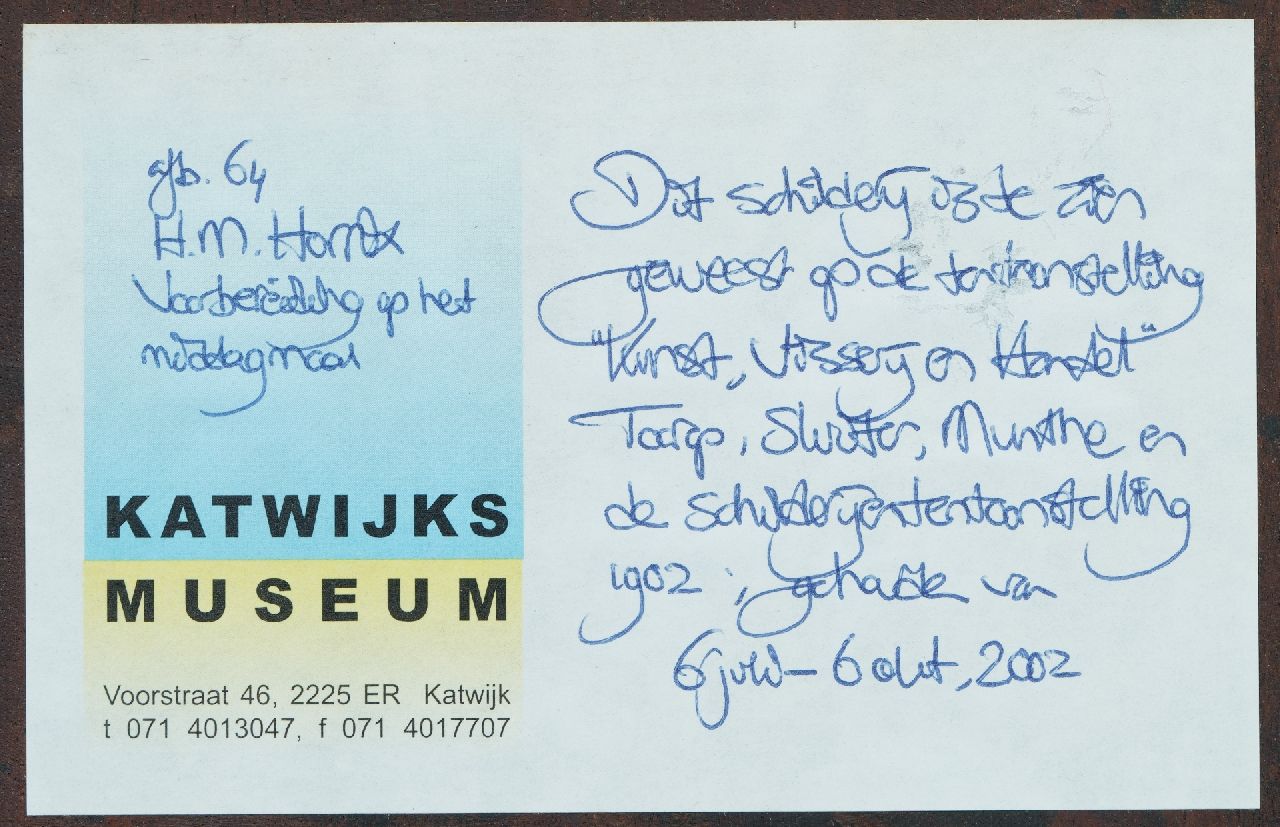 afb. 64
H.M. Horrix
Voorbereiding op het
middagmaal
KATWIJKS
MUSEUM
Voorstraat 46, 2225 ER Katwijk
t 071 4013047, f 071 4017707
Dit schilderij is te zien
geweest op de tentoonstelling
"Kunst, Visserij en Handel"
Toorop, Sluiter, Munthe en
de schilderijententoonstelling
1902 ; gehouden van
6 juli – 6 okt, 2002